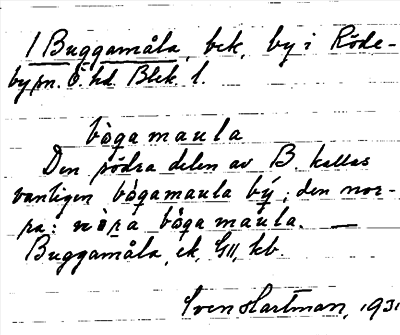 1 Buggamåla, bek, by i Röde-
by sn. Ö. hd. Blek. l.
bògamaula
Den södra delen av B. kallas
vanligen bògamaula bý; den nor-
ra: nòra bògamaula. —
Buggamåla, ek, GII, kb.
Sven Hartman, 1931